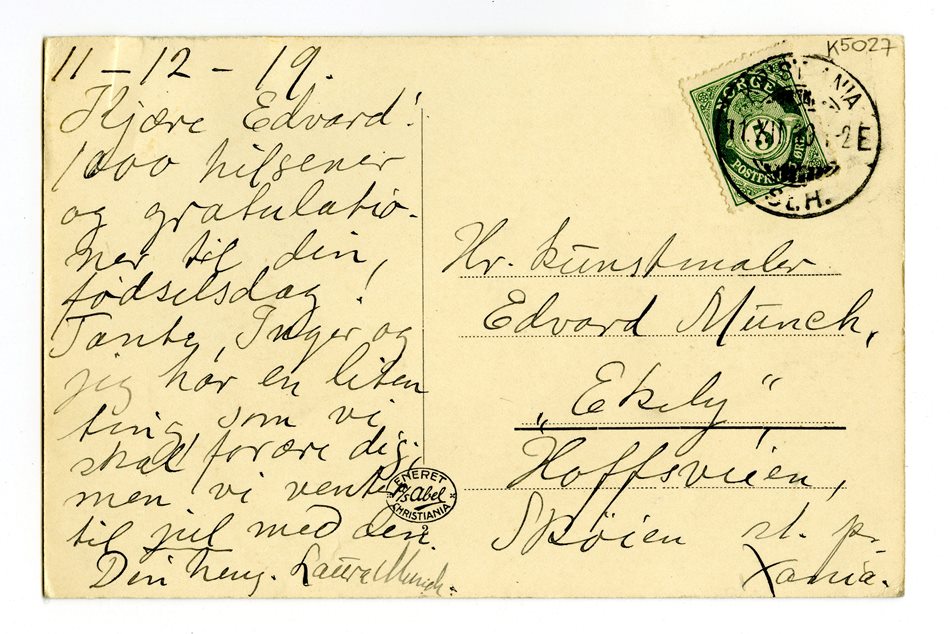 K5027
11-12-19.
Kjære Edvard!
1000 hilsener
og gratulatio-
ner til din
fødselsdag!
Tante, Inger og
jeg har en liten
ting som vi
skal forære dig,
men vi venter
til jul med den.
Din heng. Laura Munch.
ENERET
A/S Abel
CHRISTIANIA
2
NORGE
POSTFRIM
ØRE
11.XII
-2E
ST.H.
Hr. Kunstmaler
Edvard Munch,
"Ekely"
Hoffsveien,
Skøien st. pr.
Xania.